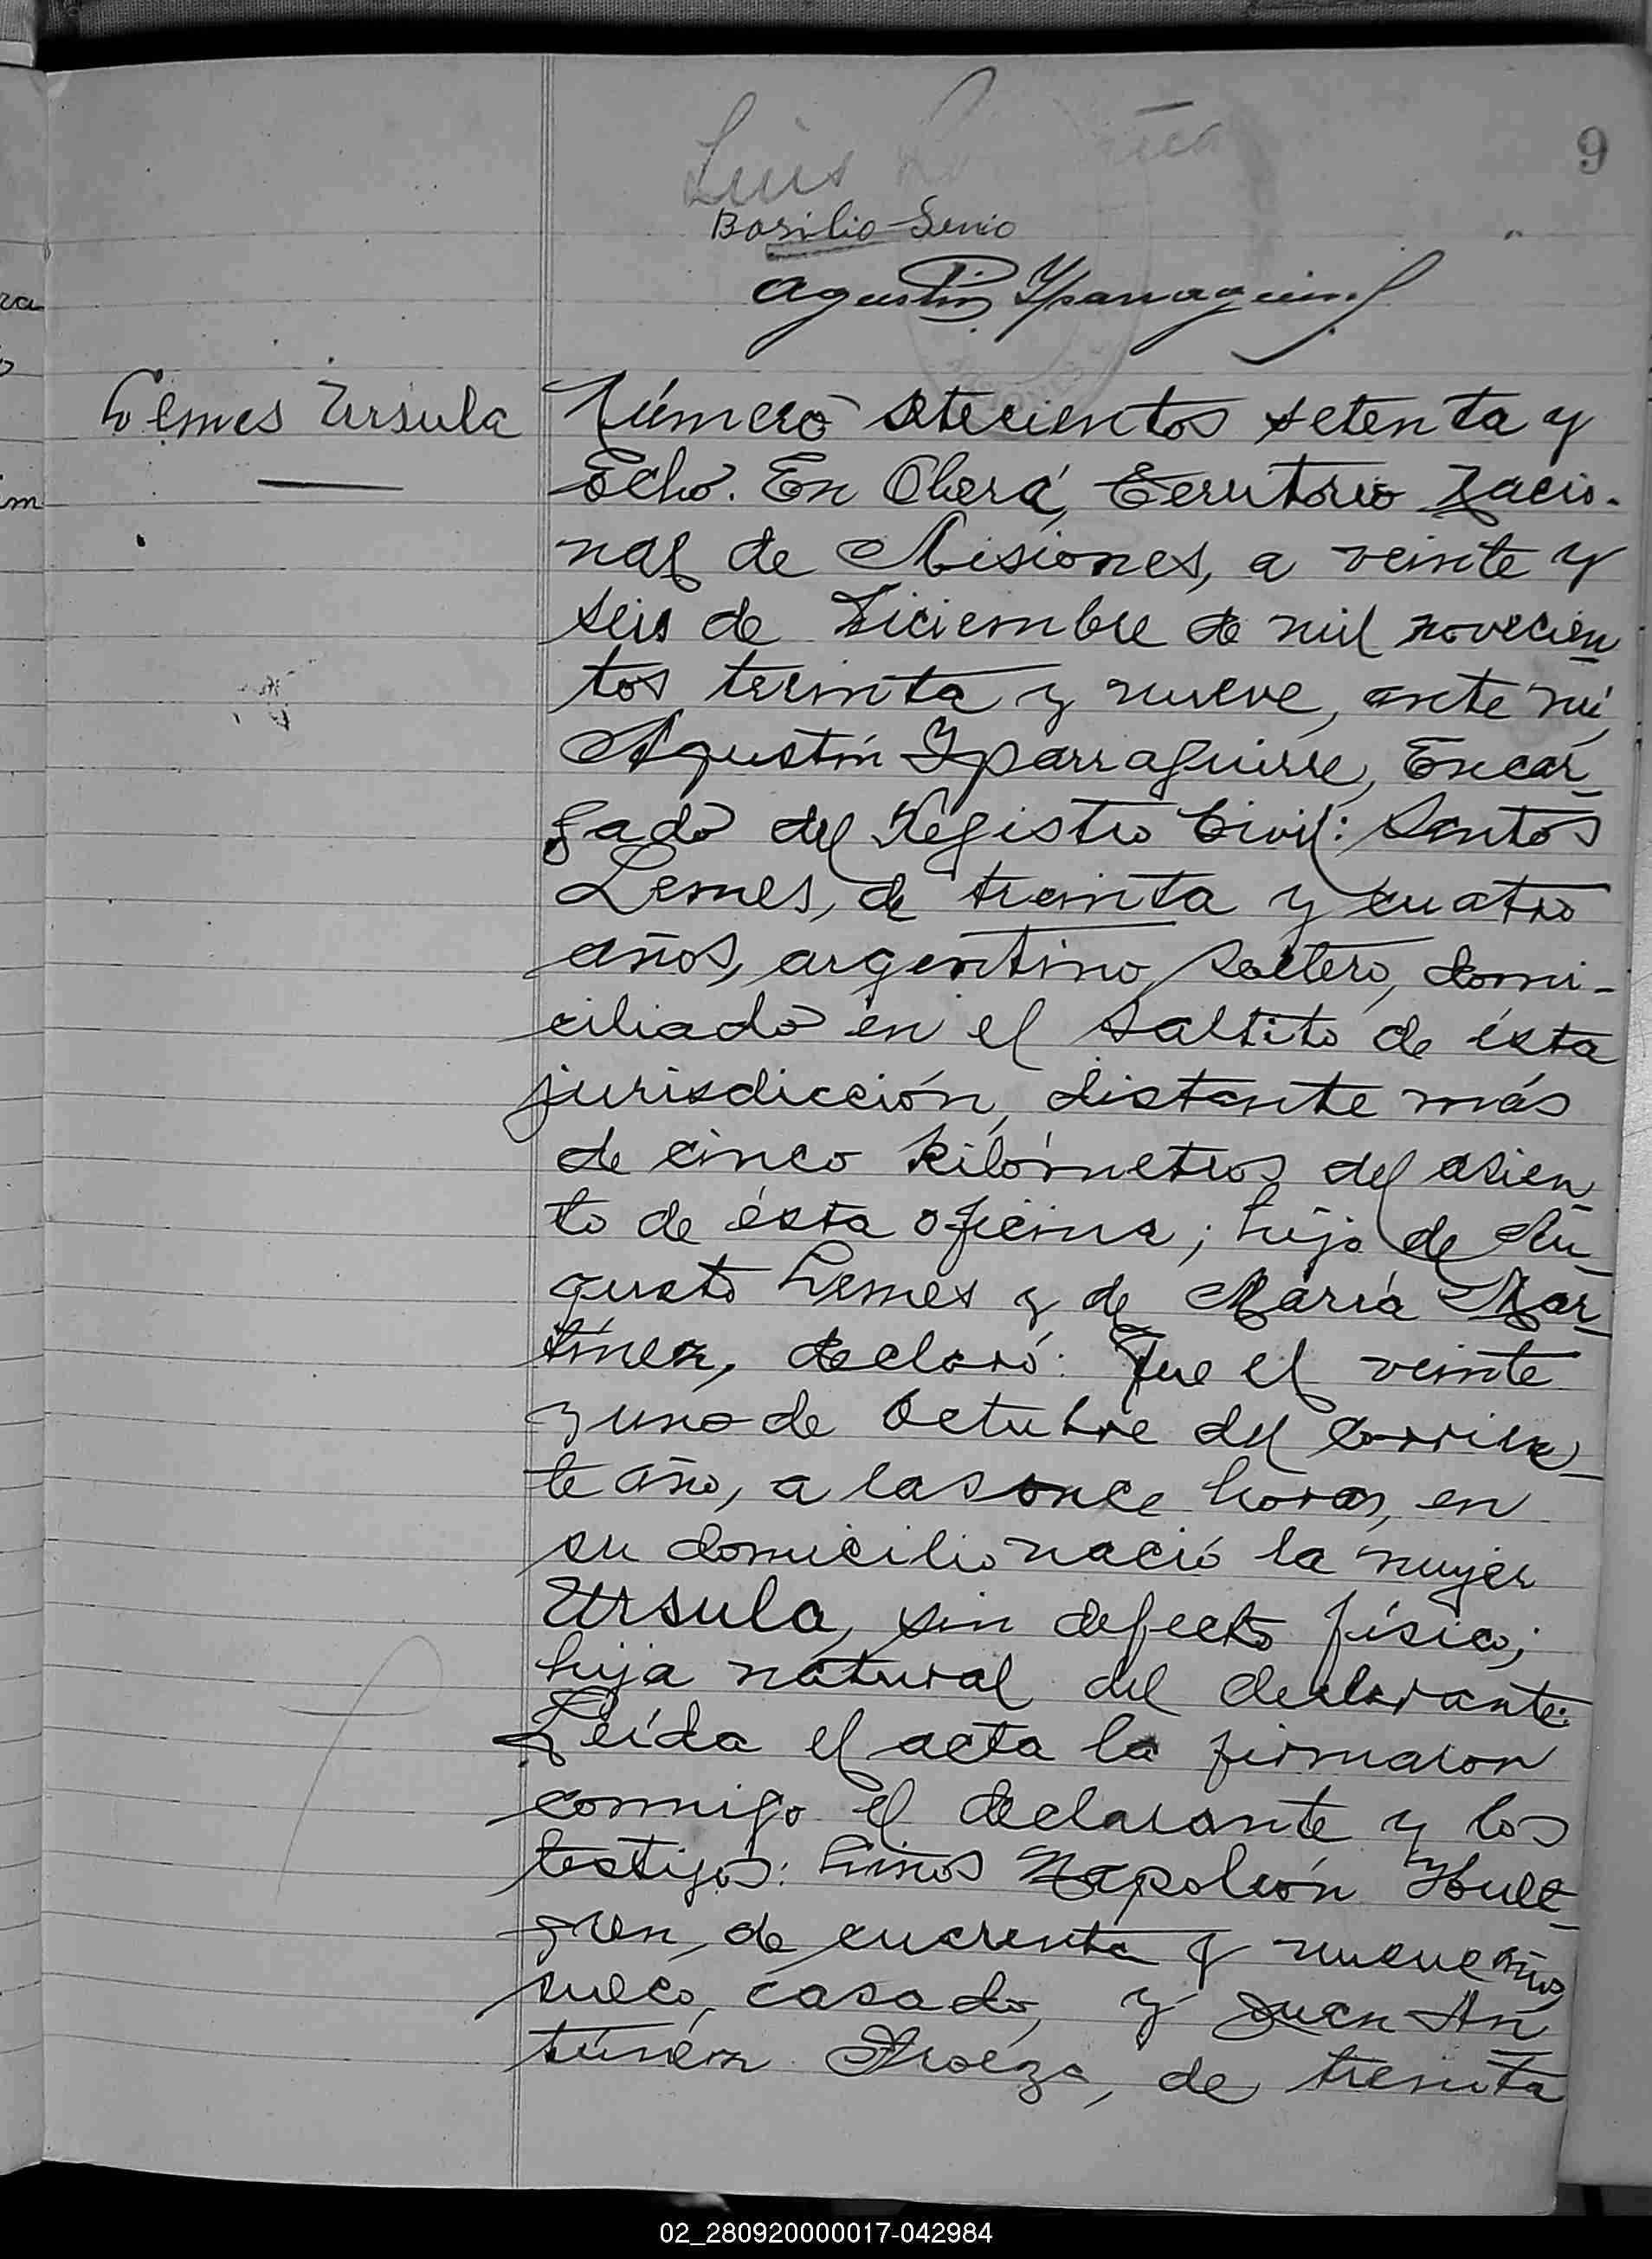 9
Luis
Basilio Senio
Agustín Yparraguirre
Lemes Ursula
Número setecientos setenta y
Ocho. En Oberá, Territorio Nacio-
nal de Misiones, a veinte y
seis de Diciembre de mil novecien
tos treinta y nueve, ante mí,
Agustín Yparraguirre, Encar-
gado del Registro Civil: Santos
Lemes, de treinta y cuatro
años, argentino, soltero, domi-
ciliado en el Saltito de ésta
jurisdicción, distante más
de cinco kilómetros del asien
to de ésta oficina; hijo de Au-
gusto Lemes y de María Mar-
tínez, declaró: Que el veinte
y uno de Octubre del corrien-
te año, a las once horas, en
su domicilio nació la mujer
Ursula, sin defecto físico;
hija natural del declarante.
Leída el acta la firmaron
conmigo el declarante y los
testigos: Linos Napoleón Hult-
gren, de cuarenta y nueve años,
sueco, casado, y Juan An
túnez Froeza, de treinta
02_280920000017-042984